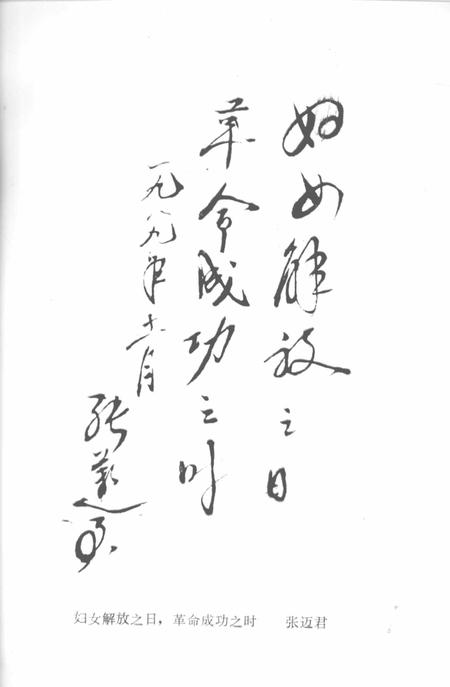 妇女解放之日
革命成功之时
一九八九年十一月
张迈君
妇女解放之日，革命成功之时　　张迈君